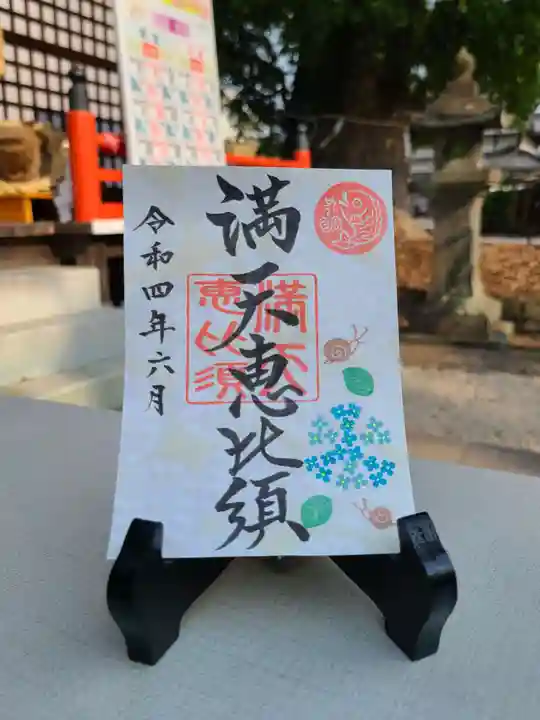 満天恵比須
満天
恵比須
令和四年六月